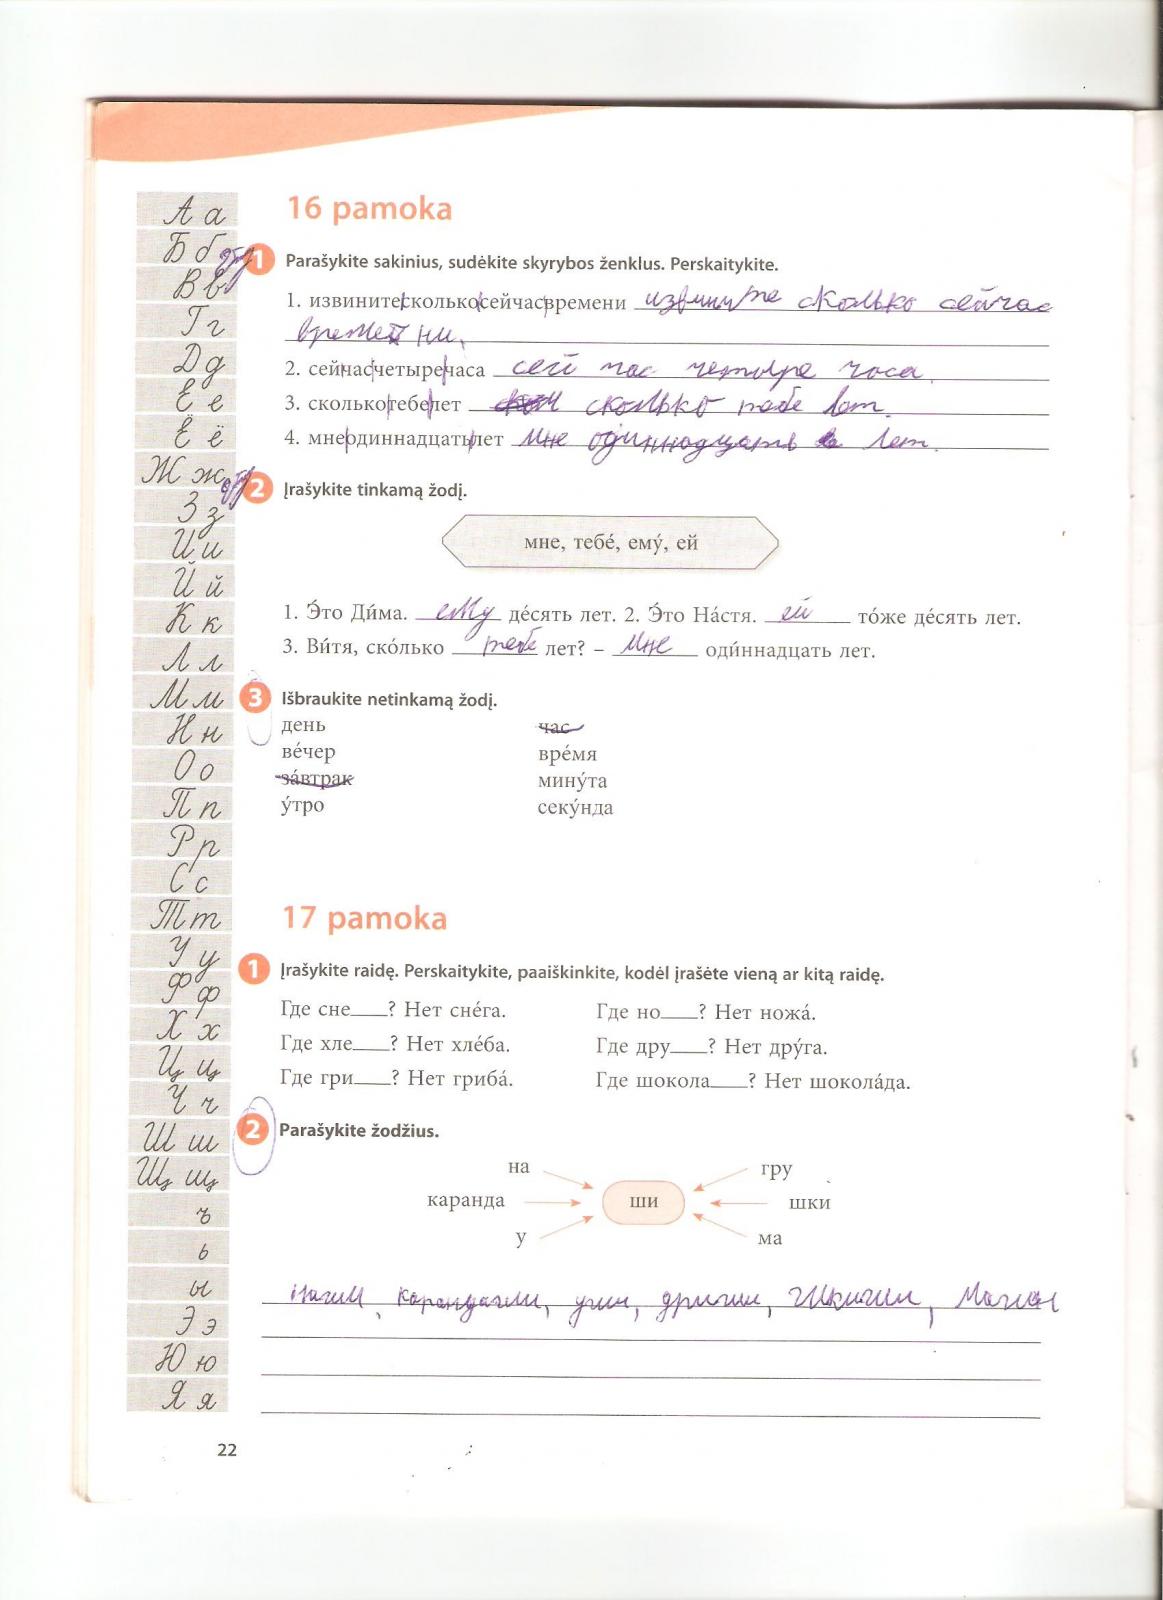 16 pamoka
А а
Б б
В в
Г г
Д д
Е е
Ё ё
Ж ж
З з
И и
Й й
К к
Л л
М м
Н н
О о
П п
Р р
С с
Т т
У у
Ф ф
Х х
Ц ц
Ч ч
Ш ш
Щ щ
ъ
ь
ы
Э э
Ю ю
Я я
1 Parašykite sakinius, sudėkite skyrybos ženklus. Perskaitykite.
1. извинитесколькосейчасвремени извините сколько сейчас
времени.
2. сейчасчетыречаса сей час четыре часа.
3. сколькотебелет сколько тебе лет.
4. мнеодиннадцатьлет мне одиннадцать лет.
2 Įrašykite tinkamą žodį.
мне, тебе́, ему́, ей
1. Э́то Ди́ма. ему де́сять лет. 2. Э́то На́стя. ей то́же де́сять лет.
3. Ви́тя, ско́лько тебе лет? – мне оди́ннадцать лет.
3 Išbraukite netinkamą žodį.
день час
ве́чер вре́мя
за́втрак мину́та
у́тро секу́нда
17 pamoka
1 Įrašykite raidę. Perskaitykite, paaiškinkite, kodėl įrašėte vieną ar kitą raidę.
Где сне___? Нет сне́га. Где но___? Нет ножа́.
Где хле___? Нет хле́ба. Где дру___? Нет дру́га.
Где гри___? Нет гриба́. Где шокола___? Нет шокола́да.
2 Parašykite žodžius.
на гру
каранда ши шки
у ма
22